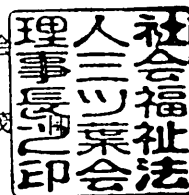 社会福祉法
人三ツ葉会
理事長之印